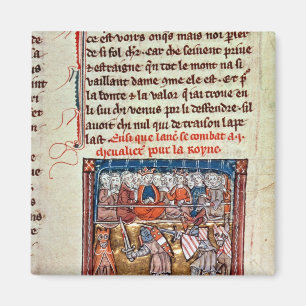 ce est voirs onqs mais noi parler
de si fol chr. Car che seiuent priue
& estraigne q̃ en tot le mont na si
vaillant dame qme ele est. Et p̃
la bonte & la valor q̃ iai troue en
li sui chi venus pr li deffendre. si
auoit chi nul qui de traison lape
last.
Ensi que lanc̃ se combat a .j.
cheualier pour la royne.